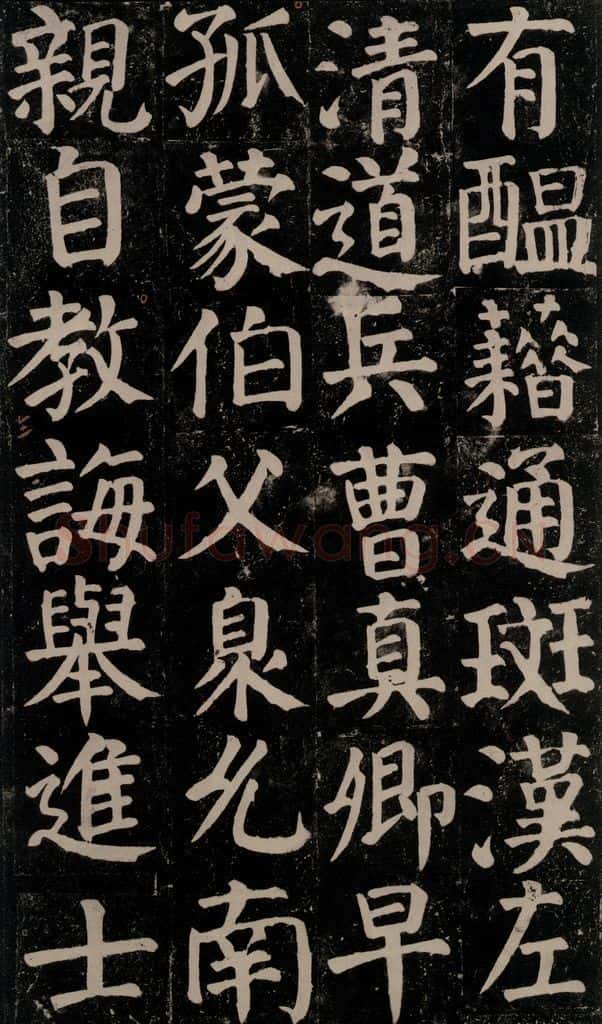 有醖藉通斑漢左
清道兵曹真卿早
孤蒙伯父臮允南
親自教誨舉進士
shufawang.cn